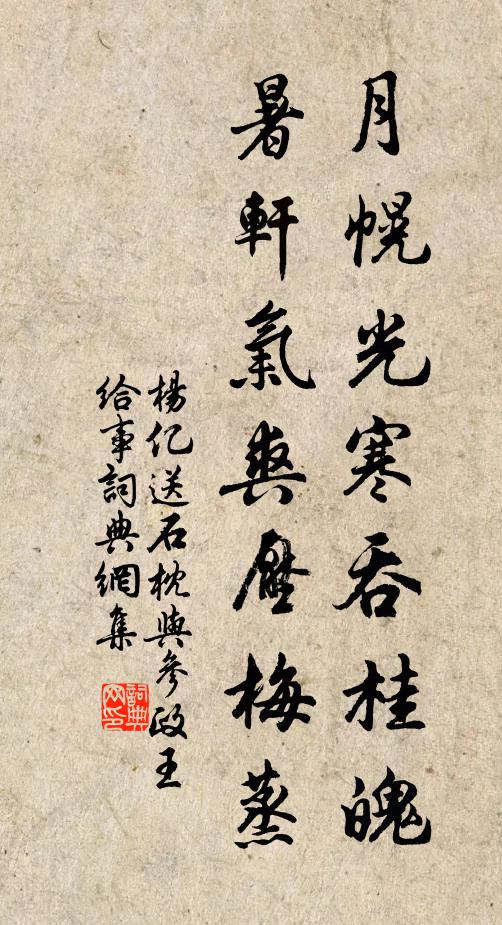 月幌光寒吞桂魄
暑軒氣爽壓梅蒸
楊亿送石枕與參政王
給事詞典網集
詞典网印